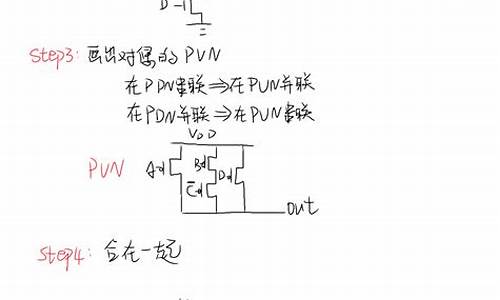 D
Step3: 画出对偶的 PUN
在PDN串联⇒在PUN并联
在PDN并联⇒在PUN串联
VDD
PUN A B D
C̅
out
Step4: 合在一起